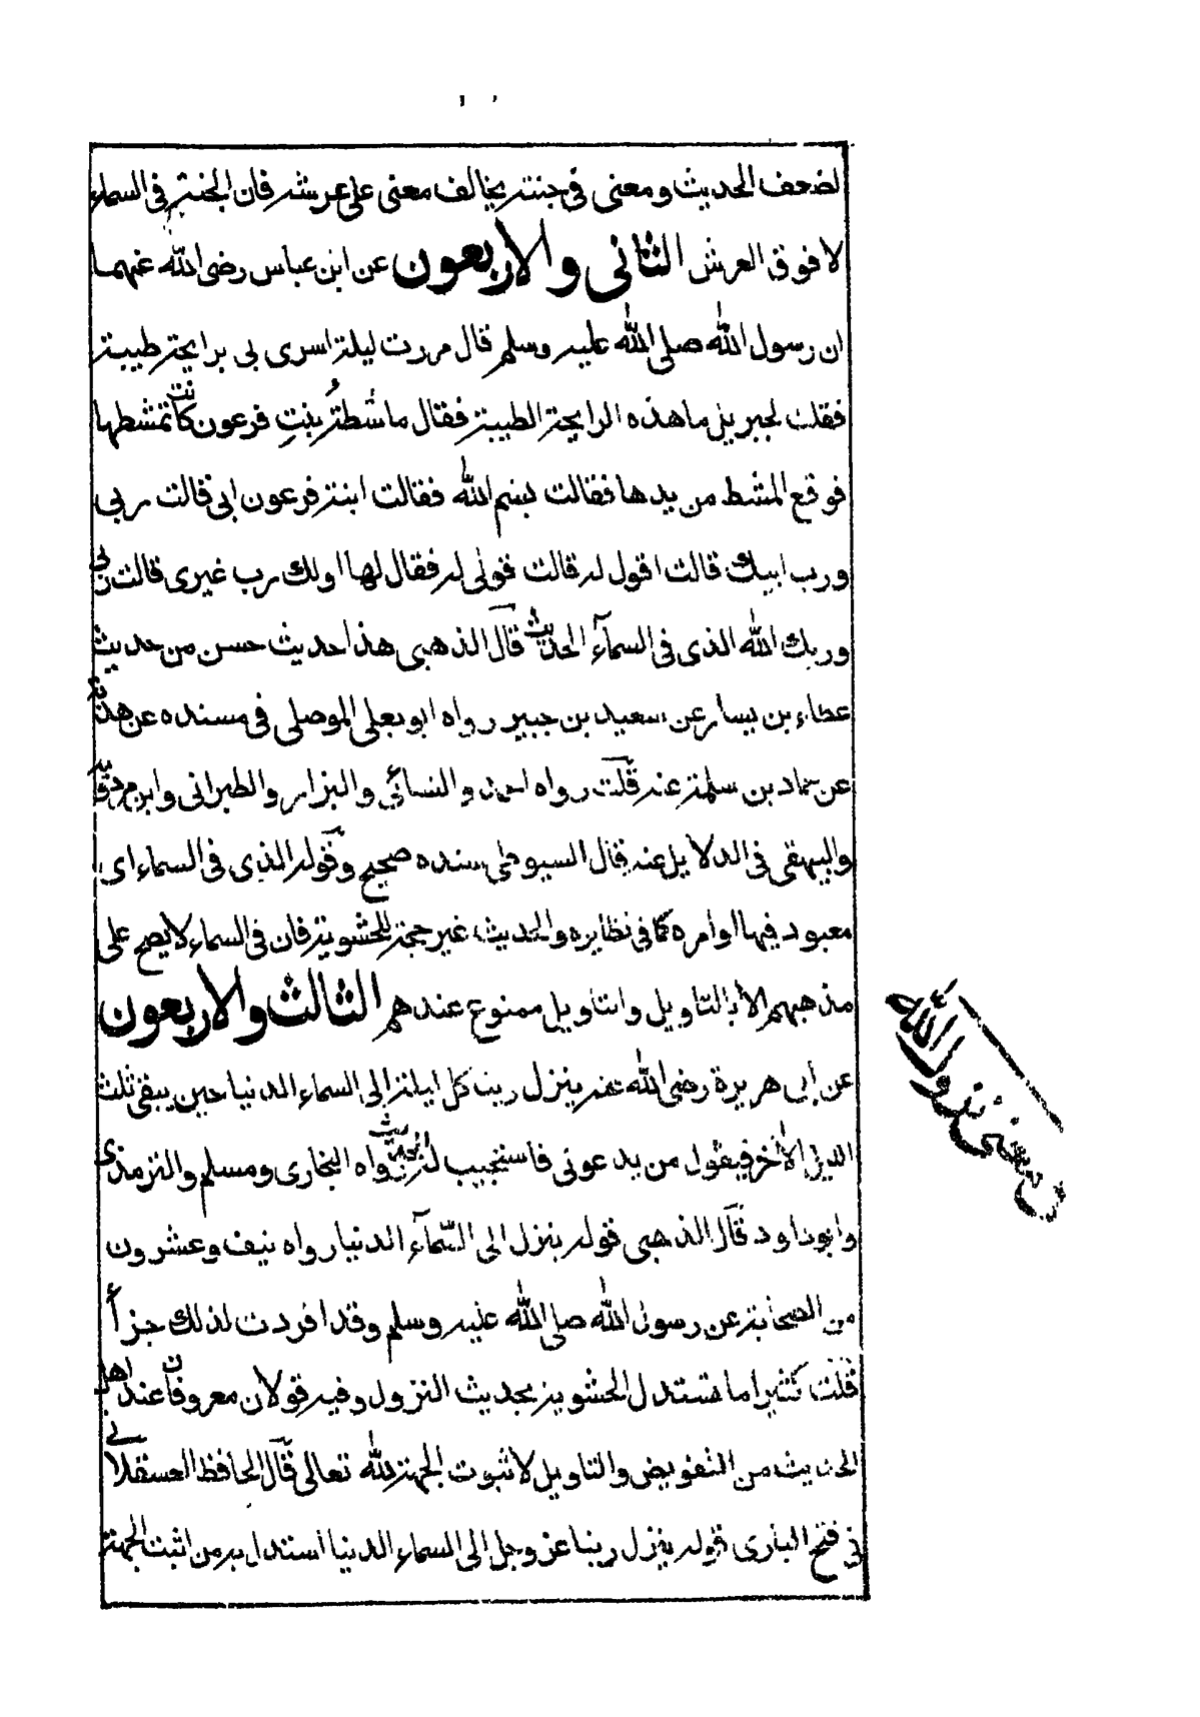 لضعف الحديث ومعنى فى جنته يخالف معنى على عرشه فان الجنة فى السماء
لا فوق العرش الثانى والاربعون عن ابن عباس رضى الله عنهما
ان رسول الله صلى الله عليه وسلم قال مررت ليلة اسرى بى برايحة طيبة
فقلت لجبريل ما هذه الرايحة الطيبة فقال ماشطةُ بنتِ فرعون كانت تمشطها
فوقع المشط من يدها فقالت بسم الله فقالت ابنة فرعون ابى قالت ربى
ورب ابيك قالت اقول له قالت قولى له فقال لها اولك رب غيرى قالت ربى
وربك الله الذى فى السمآء الحديث قال الذهبى هذا حديث حسن من حديث
عطاء بن يسار عن سعيد بن جبير رواه ابو يعلى الموصلى فى مسنده عن هدبة
عن حماد بن سلمة عنه قلت رواه احمد والنسائي والبزار والطبرانى وابن مردويه
والبيهقى فى الدلايل عنه قال السيوطى سنده صحيح وقوله الذى فى السماء اى
معبود فيها او امره كما فى نظايره والحديث غير حجة للحشوية فان فى السماء لا يصح على
مذهبهم الا بالتاويل والتاويل ممنوع عندهم الثالث والاربعون
عن أبى هريرة رضى الله عنه ينزل ربنا كل ليلة الى السماء الدنيا حين يبقى ثلث
الليل الأخر فيقول من يدعونى فاستجيب له الحديث رواه البخارى ومسلم والترمذى
وابو داود قال الذهبى قوله ينزل الى السّمآء الدنيا رواه نيف وعشرون
من الصحابة عن رسول الله صلى الله عليه وسلم وقد افردت لذلك جزأ
قلت كثيرا ما تستدل الحشوية بحديث النزول وفيه قولان معروفان عند اهل
الحديث من التفويض والتاويل لا ثبوت الجهة لله تعالى قال الحافظ العسقلانى
فى فتح البارى قوله ينزل ربنا عز وجل الى السماء الدنيا استدل به من اثبت الجهة
معنى نزول الله